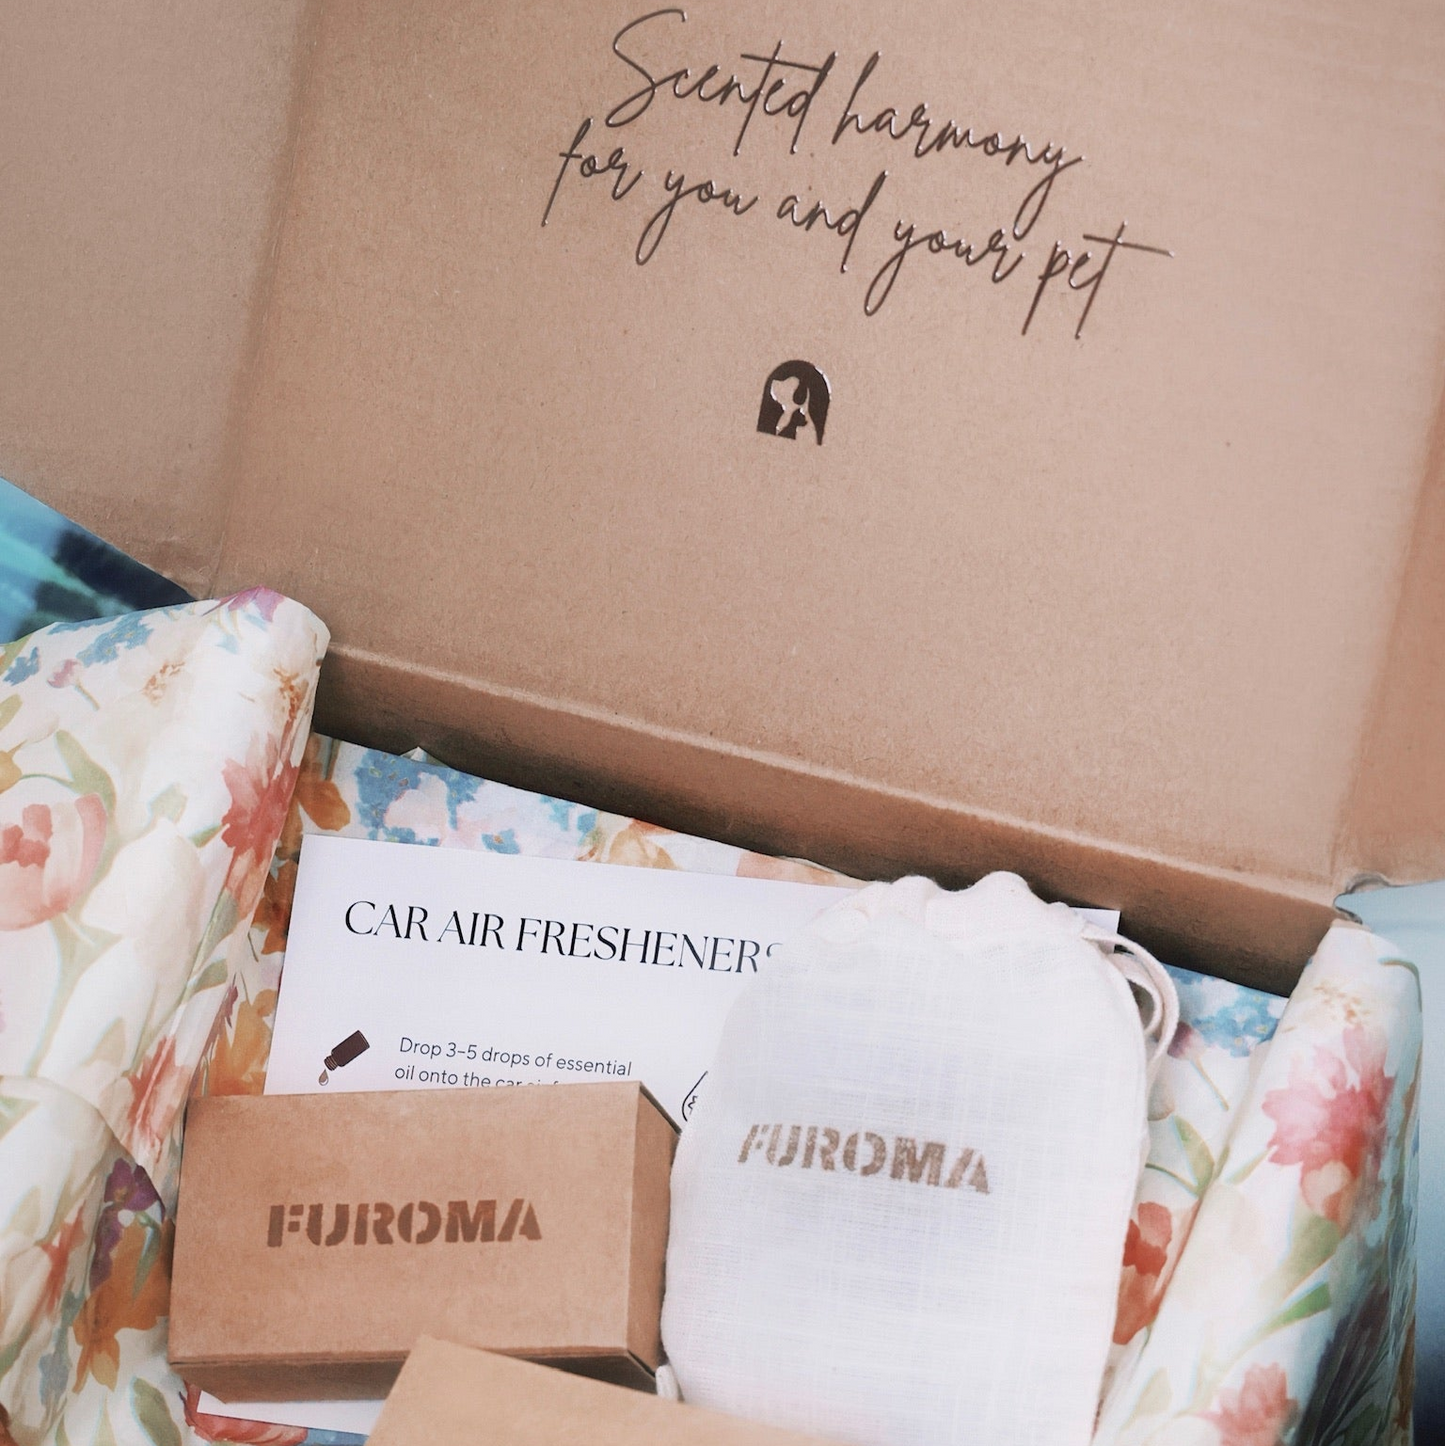 Scented harmony
for you and your pet
CAR AIR FRESHENERS
Drop 3-5 drops of essential
oil onto the car air
FUROMA
FUROMA